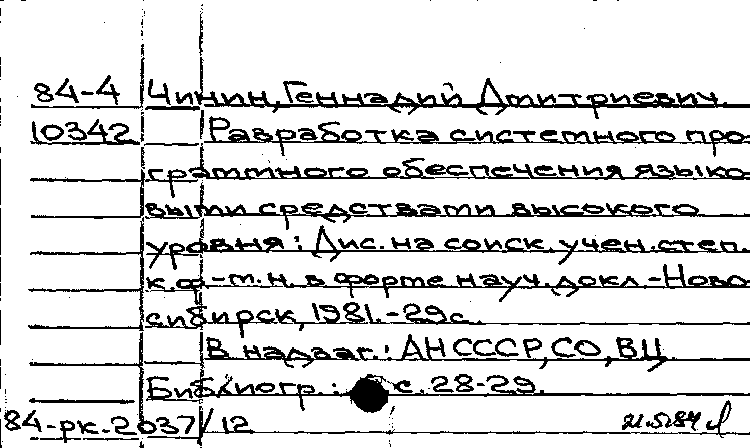 84-4 Чинин, Геннадий Дмитриевич.
10342 Разработка системного про-
граммного обеспечения языко-
выми средствами высокого
уровня: Дис. на соиск. учен. степ.
к.ф.-м.н. в форме науч. докл.-Ново-
сибирск, 1981.-29с.
В надзаг.: АН СССР, СО, ВЦ.
Библиогр.: с. 28-29.
84-рк.2037/12 21.5.84